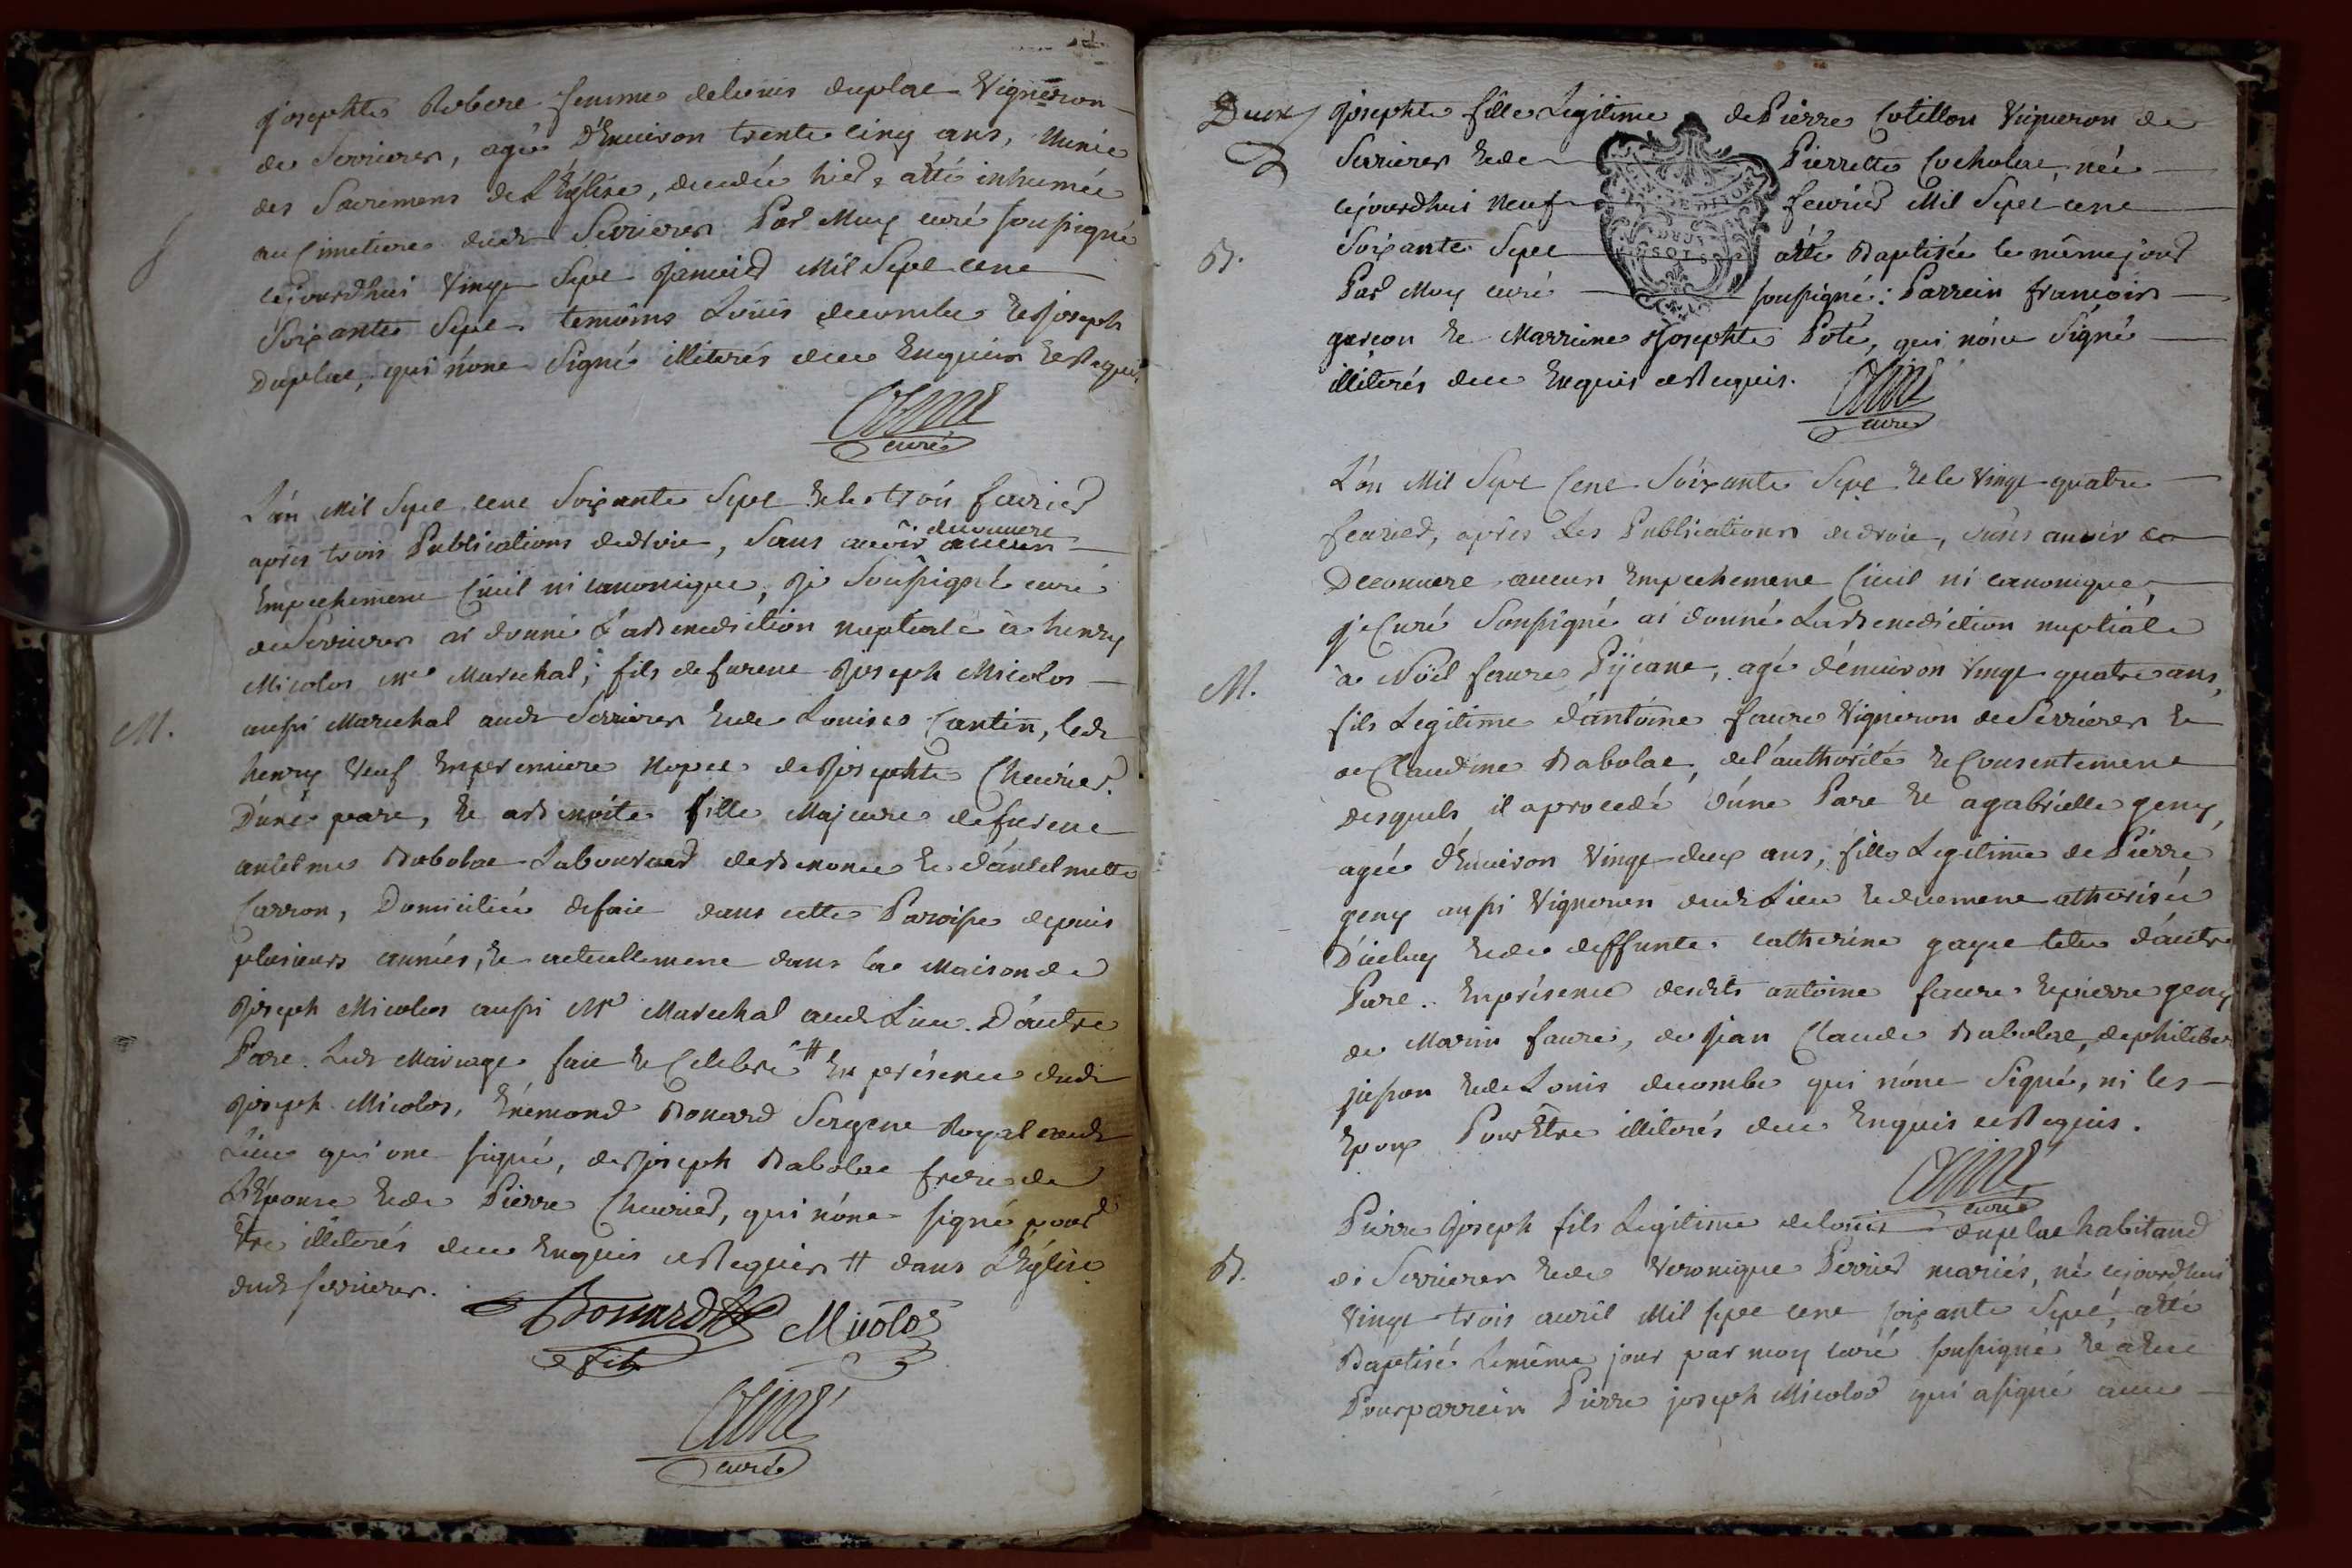 Josephte Robert femme de Louis duplat Vigneron
de Serrieres, agée D'Environ trente cinq ans, Munie
des Sacremens de L'Église, decedée hier, a été inhumée
au Cimetiere dudt Serrieres Par Moy curé soussigné
cejourdhui Vingt Sept Janvier Mil Sept cent
Soixante Sept temoins Louis decombe et Joseph
Duplat, qui n'ont Signé illiterés deue Enquis et Requis
curé
L'an Mil Sept cent Soixante Sept et le trois fevrier
après trois Publications de droit, Sans avoir decouvert aucun
Empechement Civil ni canonique, Je Soussigné curé
de Serrieres ai donné La Benediction nuptiale à henry
Micolos Me Marechal, fils de furent Joseph Micolos
M.
aussi Marechal audt Serrieres et de Louise Cantin, ledt
henry Veuf En premiere Nopce de Josephte Chevrier
D'une part, et a Benoite fille Majeure de furent
antelme Babolat Laboureur de Benonce et d'antelmette
Carron, Domiciliée de fait dans cette Paroisse depuis
plusieurs années, et actuellement dans la Maison de
Joseph Micolos aussi Me Marechal audt Lieu. D'autre
Part. Ledt Mariage fait et Celebré # En présence dudt
Joseph Micolos, Enémond Bonard Sergent Royal audt
Lieu qui ont signé, de Joseph Babolat frere de
L'Épouse et de Pierre Chevrier, qui n'ont signé pour
Etre illiterés deue Enquis et Requis # dans L'Église
dudt serrieres.
Bonard Micolos
fils
curé
Deux Josephte fille Legitime de Pierre Cotillon Vigneron de
Serrieres et de Pierrette Cocholat, née
cejourdhui Neuf fevrier Mil Sept cent
B.
Soixante Sept a été Baptisée le même jour
Par Moy curé soussigné: Parrein francois
garçon et Marreine Josephte Poté, qui n'ont Signé
illiterés deue Enquis et Requis.
curé
L'an Mil Sept Cent Soixante Sept et le Vingt quatre
fevrier, après Les Publications de droit, sans avoir
Decouvert aucun Empechement Civil ni canonique,
je Curé Soussigné ai donné La Benediction nuptiale
M.
à Noël faure Pijeane, agé d'environ Vingt quatre ans,
fils Legitime d'antoine faure Vigneron de Serrieres et
de Claudine Babolat, de l'authorité et Consentement
desquels il a procedé d'une Part et a gabrielle geny,
agée d'Environ Vingt deux ans, fille Legitime de Pierre
geny aussi Vigneron dudt Lieu et duement athorisée
D'icelluy et de deffunte catherine tete d'autre
Part. En présence desdits antoine faure et pierre geny
de Marin faure, de Jean Claude Babolat, de philibert
juppon et de Louis decombe qui n'ont Signé, ni les
Epoux Pour Etre illiterés deue Enquis et Requis.
curé
Pierre Joseph fils Legitime de Louis duplat habitand
B.
de Serrieres et de Veronique Perrier mariés, né cejourdhui
Vingt trois avril Mil sept cent soixante Sept, a été
Baptisé Le même jour par moy curé soussigné et a eu
Pour parrein Pierre joseph Micolos qui a signé avec